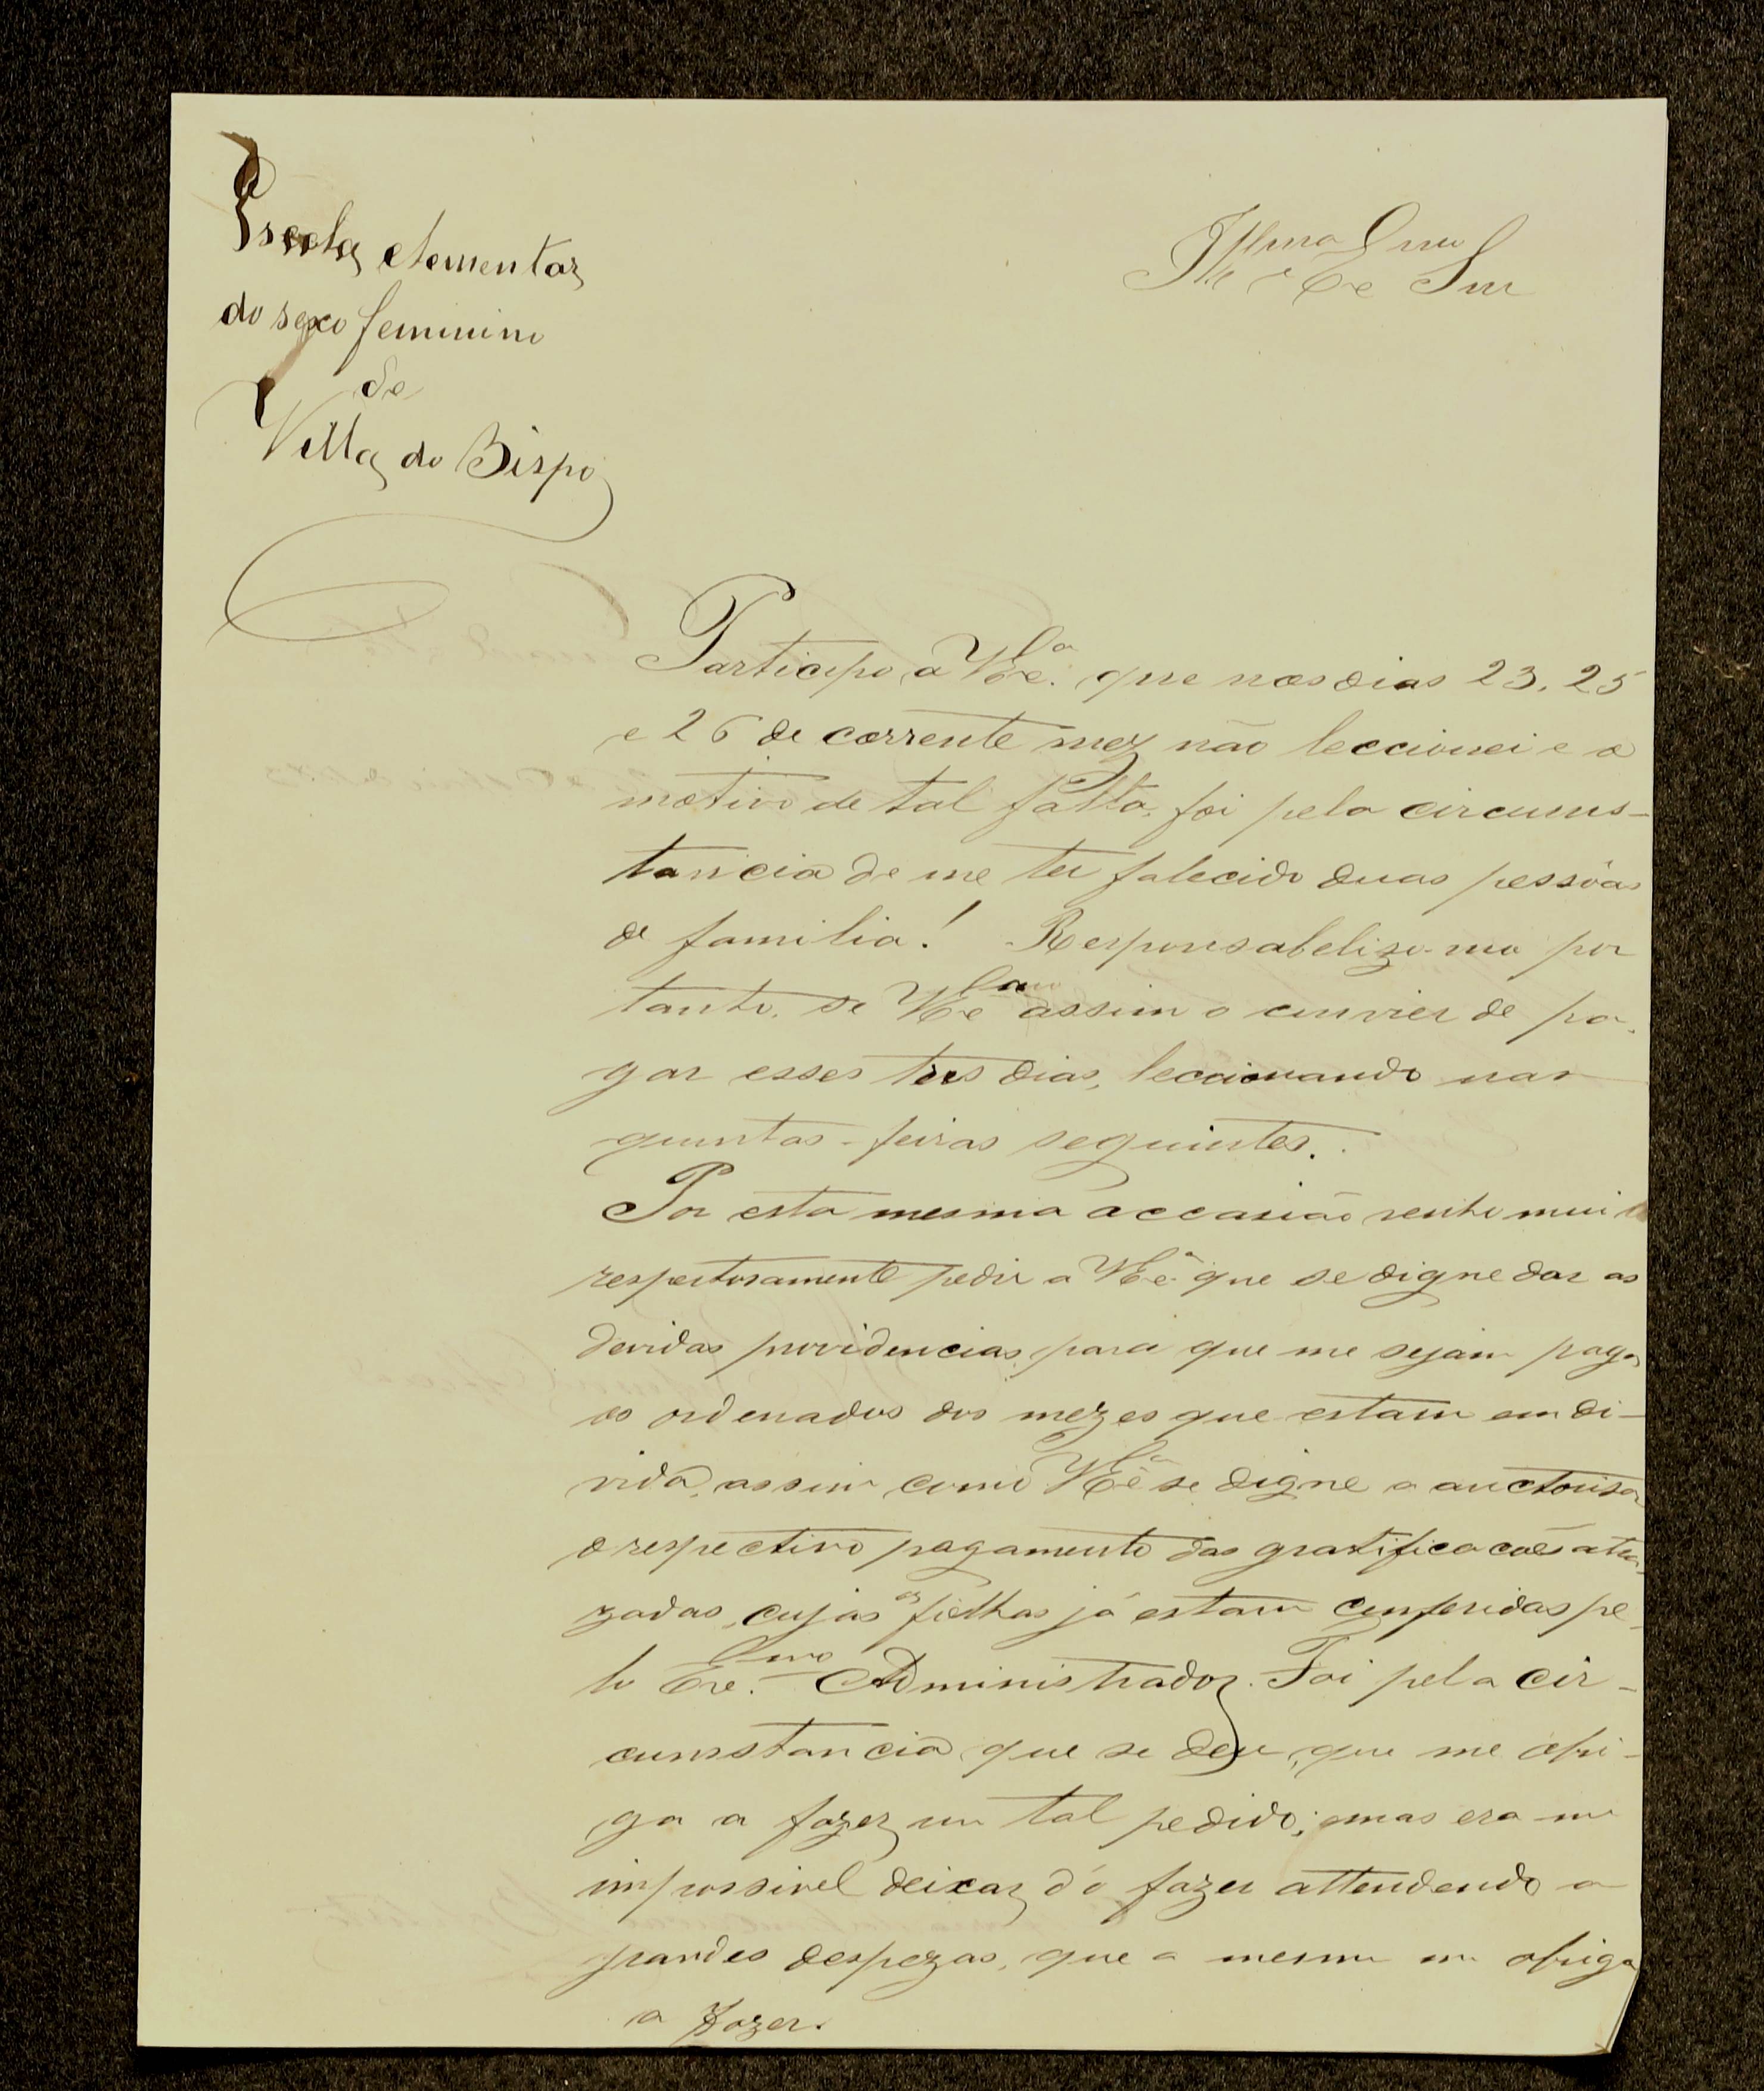 Escola elementar
do sexo feminino
de
Villa do Bispo
Illmo e Exmo Snr
Participo a V Ex.ª que nos dias 23, 25
e 26 de corrente mez não leccionei e o
motivo de tal falta, foi pela circums-
tancia de me ter falecido duas pessôas
de familia! Responsabelizo-me por
tanto, se V Exª assim o convier de pa-
gar esses tres dias, leccionando nas
quintas-feiras seguintes.
Por esta mesma occasião venho mui
respeitosamente pedir a V Exª que se digne dar as
devidas providencias, para que me sejam pagos
os ordenados dos mezes que estam em di-
vida, assim como V Exª se digne a auctorisar
o respectivo pagamento das gratificacões atra-
zadas, cujas as folhas já estam conferidas pe-
lo Exmo Administrador. Foi pela cir-
cumstancia que se deu, que me obri-
ga a fazer um tal pedido; mas era-me
impossivel deixar dó fazer attendendo a
grandes despezas, que a mesma me obriga
a fazer.